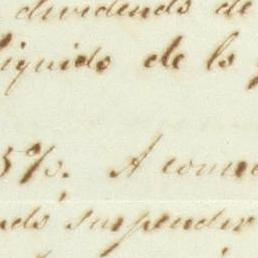 dividendo de
liquido de lo
5%. A come
ndo suspender